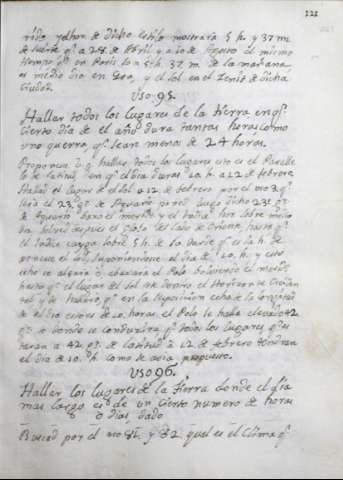 121
rido yohora de dicho estilo mostraria 5 h. y 37 m.
de tarde q.e a 28 de Abril y a 10 de Agosto el mismo
tiempo q.e en Paris lo a 5 h. 37 m. de la mañana
es medio dia en Goa, y el sol en el Zenit de dicha
Ciudad.
VSO. 95.
Hallar todos los lugares de la tierra en q.e
cierto dia de el año dura tantas horas como
uno querra q.e sean menos de 24 horas.
Propongase v.g. hallar todos los lugares esto es el Parale
lo de latitud, en q.e el dia dura 10. h. a 12 de febrero
Hallad el lugar de el sol a 12 de febrero por el uso 3. q.e
sera el 23. g.o de Aquario poned luego dicho 23. g.o
de Aquario baxo el merid.o y el Indice hor. sobre medio
dia bolved despues el globo del lado de Oriente hasta q.e
el Indice cayga sobre 5 h. de la tarde q.e es la h. de
ponerse el sol suponiendose el dia de 10. h. y esto
echo se alçara o abaxara el Polo moviendo el merid.o
hasta q.e el lugar del sol
tal y de hallaro q.e en la suposicion echa de la longitud
de el dia es de 10. horas el Polo se halla elevado 42
g.o de donde se concluira q.e todos los lugares q.e es
taran a 42 g.o de latitud a 12 de febrero tendran
el dia de 10. h. como se avia propuesto.
VSO 96.
Hallar los lugares de la tierra donde el dia
mas largo es de un cierto numero de horas
o dias dado
Buscad por el uso 81. y 82 qual es el Clima q.e